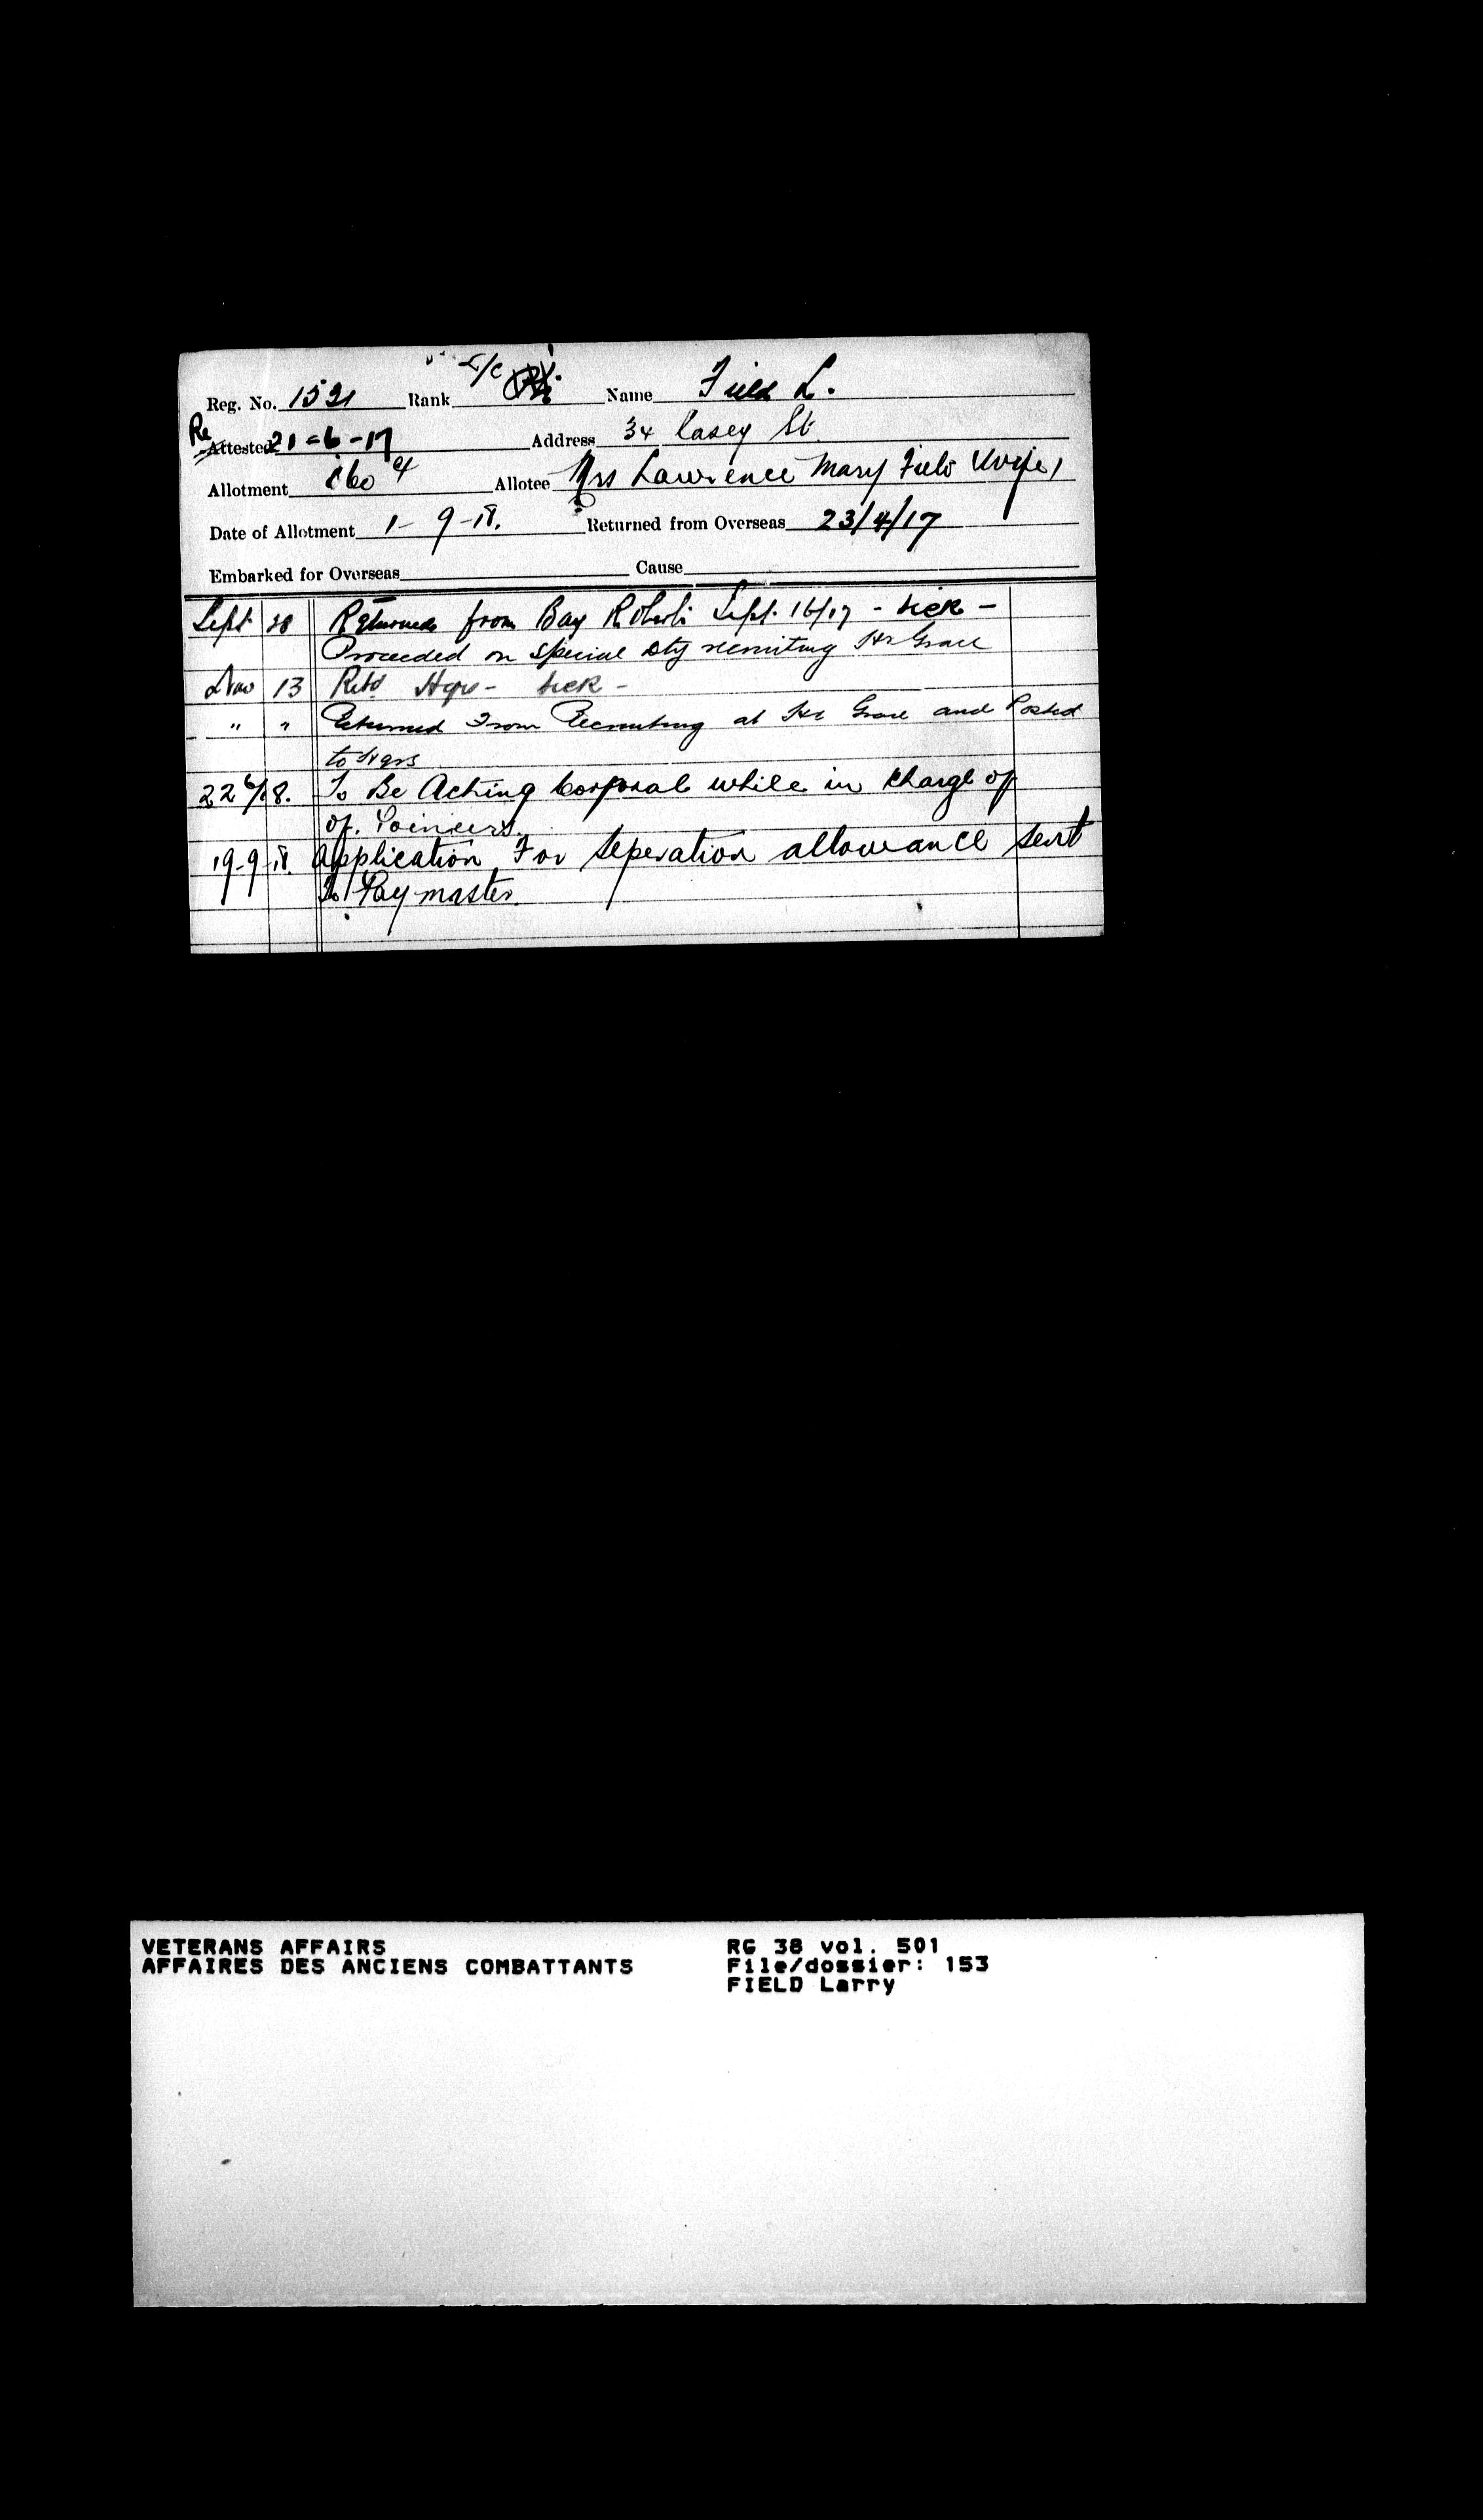 Reg. No. 1521 Rank L/C Name Field L.
Re Attested 21-6-17 Address 34 Casey St.
Allotment 60 Allotee Mrs Lawrence Mary Field (Wife)
Date of Allotment 1-9-18. Returned from Overseas 23/4/17
Embarked for Overseas Cause
Sept 28 Returned from Bay Roberts Sept. 16/17 - sick -
Proceeded on special dty recruiting Hr Grace
Nov 13 Retd Hqrs - sick -
" " Returned From Recruiting at Hr Grace and Posted
to Hqrs
22 6/18. To Be Acting Corporal while in charge of
of. Poineers.
19-9-18. Application For Seperation allowance sent
To Paymaster.
VETERANS AFFAIRS RG 38 vol. 501
AFFAIRES DES ANCIENS COMBATTANTS File/dossier: 153
FIELD Larry